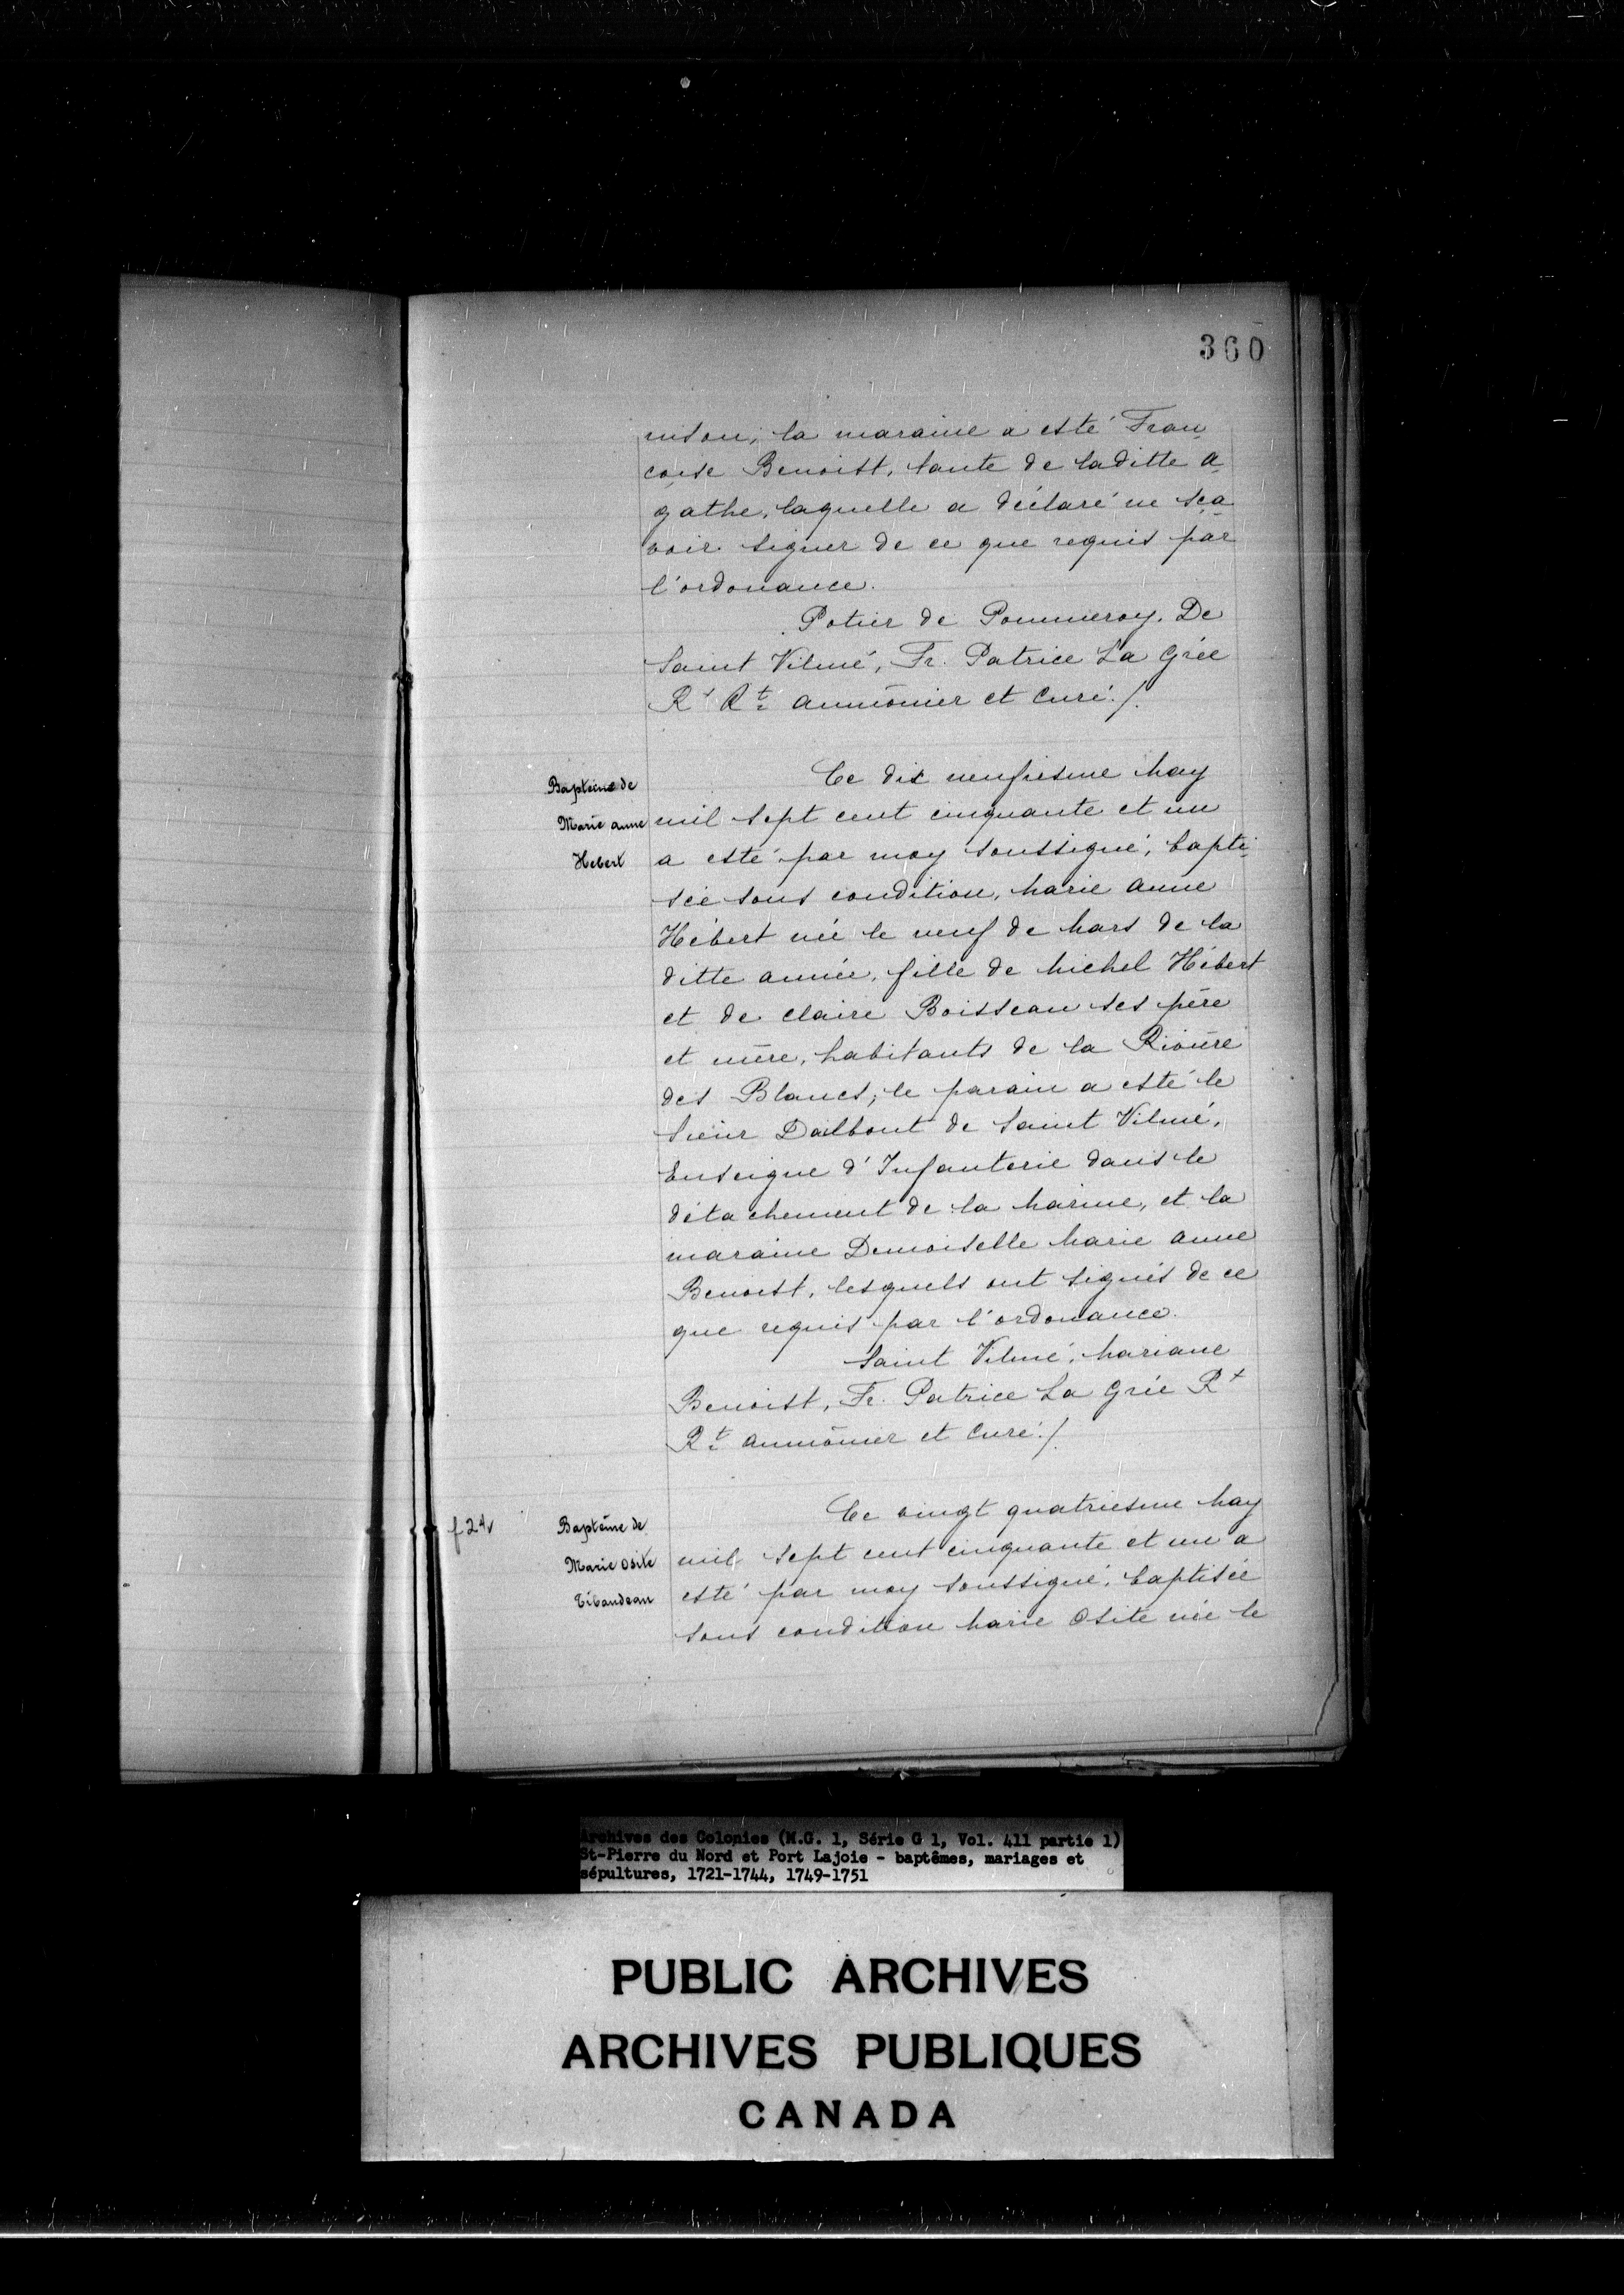 360
nison; la maraine a esté Fran
çoise Benoist, tante de laditte a
gathe, laquelle a déclaré ne sça
voir signer de ce que requis par
l'ordonance.
Potier de Pommeroy. De
Saint Vilmé, Fr. Patrice La Grée
Rt Rt aumônier et Curé./.
Baptême de
Marie anne
Hebert
Ce dix neufiesme May
mil sept cent cinquante et un
a esté par moy soussigné, bapti
sée sous condition, Marie Anne
Hébert née le neuf de Mars de la
ditte année, fille de Michel Hébert
et de Claire Boisseau ses père
et mère, habitants de la Rivière
des Blancs; le parain a esté le
Sieur Dailbout de Saint Vilmé,
Enseigne d'Infanterie dans le
détachement de la Marine, et la
maraine Demoiselle Marie Anne
Benoist, lesquels ont signés de ce
que requis par l'ordonance.
Saint Vilmé, Mariane
Benoist, Fr. Patrice La Grée Rt
Rt aumônier et Curé./.
f 24v
Baptême de
Marie Osite
Tibaudeau
Ce vingt quatriesme May
mil sept cent cinquante et un a
esté par moy soussigné, baptisée
sous condition Marie Osite née le
Archives des Colonies (M.G. 1, Série G 1, Vol. 411 partie 1)
St-Pierre du Nord et Port Lajoie - baptêmes, mariages et
sépultures, 1721-1744, 1749-1751
PUBLIC ARCHIVES
ARCHIVES PUBLIQUES
CANADA